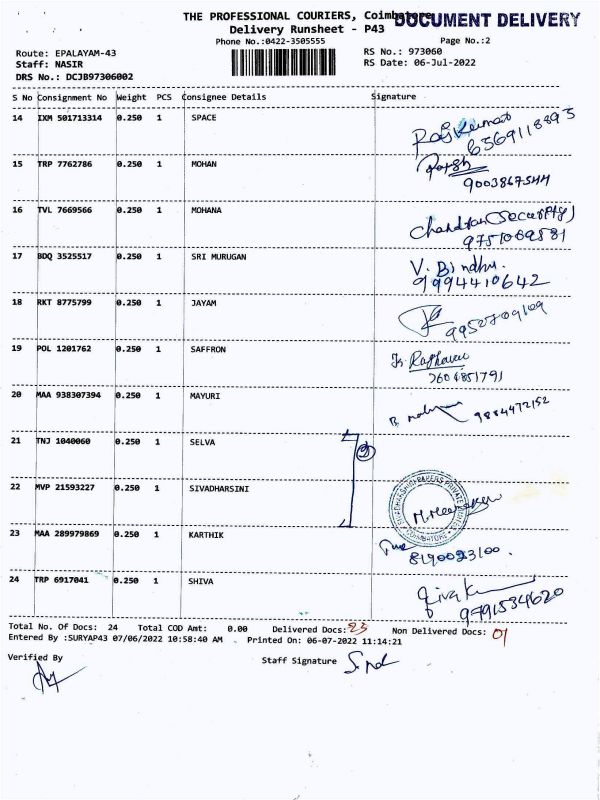 THE PROFESSIONAL COURIERS, Coimbatore
DOCUMENT DELIVERY
Delivery Runsheet - P43
Phone No.:0422-3505555
Page No.:2
Route: EPALAYAM-43
RS No.: 973060
Staff: NASIR
RS Date: 06-Jul-2022
DRS No.: DCJB97306002
S No Consignment No Weight PCS Consignee Details Signature
14 IXM 501713314 0.250 1 SPACE
Raj Kumar
6369118893
15 TRP 7762786 0.250 1 MOHAN
9003867544
16 TVL 7669566 0.250 1 MOHANA
Chandran
9751069581
17 BDQ 3525517 0.250 1 SRI MURUGAN
V. Bindhu.
9994410642
18 RKT 8775799 0.250 1 JAYAM
9952709109
19 POL 1201762 0.250 1 SAFFRON
Raghavan
20 MAA 938307394 0.250 1 MAYURI
9884472152
21 TNJ 1040060 0.250 1 SELVA
22 MVP 21593227 0.250 1 SIVADHARSINI
SIVADHARSHINI PAPERS PRIVATE LIMITED
COIMBATORE
23 MAA 289979869 0.250 1 KARTHIK
8190023100.
24 TRP 6917041 0.250 1 SHIVA
Siva K
9791534620
Total No. Of Docs: 24 Total COD Amt: 0.00 Delivered Docs: 23 Non Delivered Docs: 01
Entered By :SURYAP43 07/06/2022 10:58:40 AM . Printed On: 06-07-2022 11:14:21
Verified By
Staff Signature